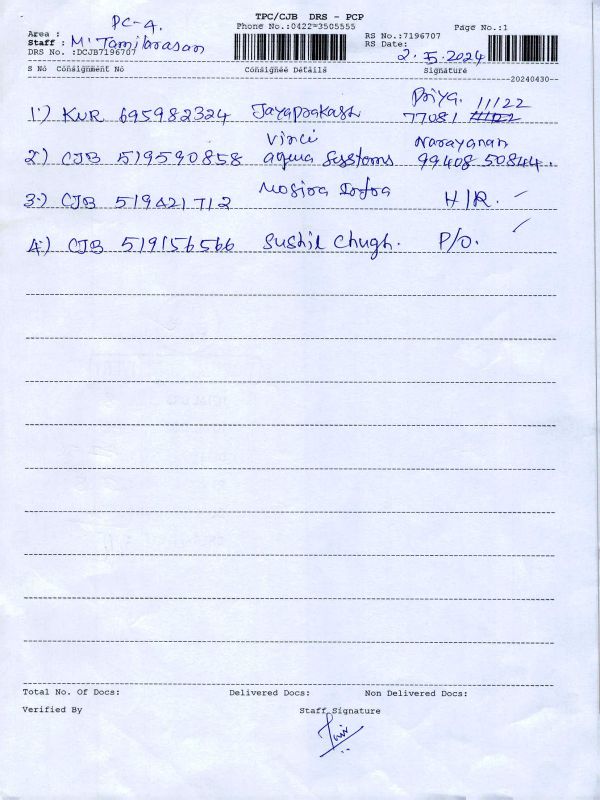 TPC/CJB DRS - PCP
Phone No.:0422-3505555 Page No.:1
Area : PC-4.
Staff : M'Tamilarasan
DRS No. :DCJB7196707
RS No.:7196707
RS Date: 2.5.2024
S No Consignment No Consignee Details Signature
20240430
1.) KNR 695982324 Jayaprakash Priya. 77081 11122 11122
2) CJB 519590858 Vinci aqua Systoms Narayanan 99408 50844.
3.) CJB 519421712 Infra H/R.
4.) CJB 519156566 Sushil Chugh. P/O.
Total No. Of Docs: Delivered Docs: Non Delivered Docs:
Verified By Staff Signature